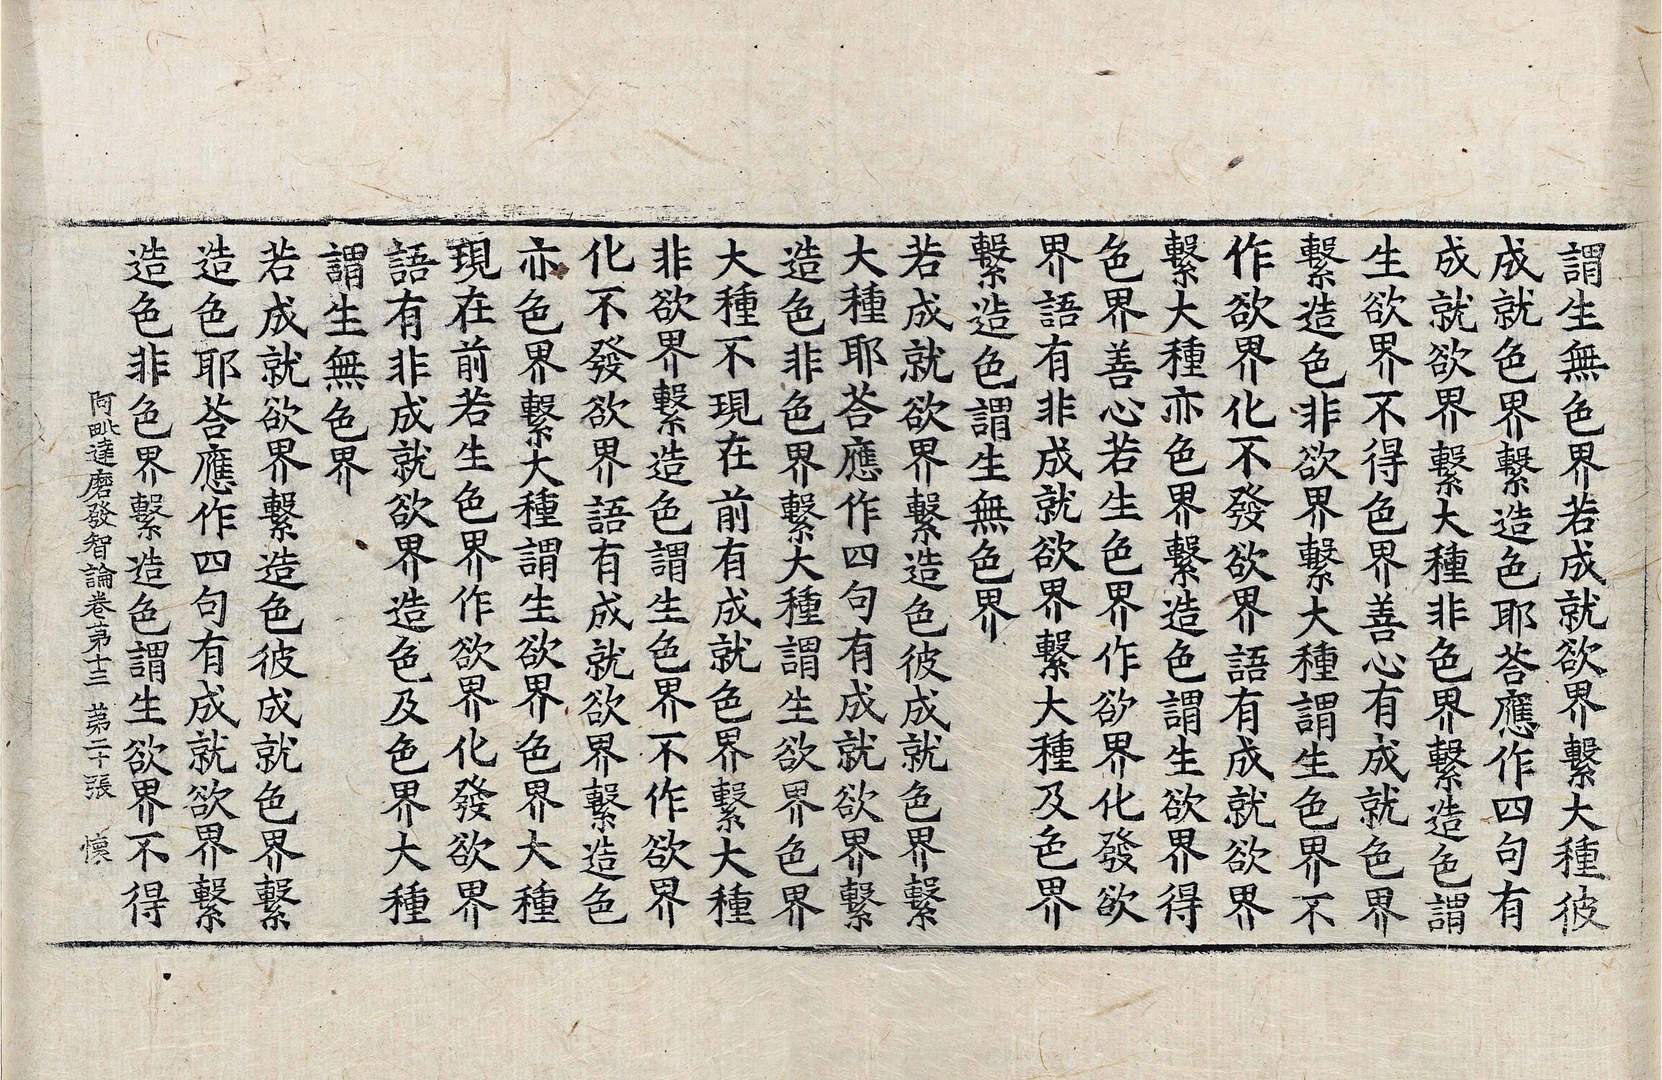 謂生無色界若成就欲界繫大種彼
成就色界繫造色耶荅應作四句有
成就欲界繫大種非色界繫造色謂
生欲界不得色界善心有成就色界
繫造色非欲界繫大種謂生色界不
作欲界化不發欲界語有成就欲界
繫大種亦色界繫造色謂生欲界得
色界善心若生色界作欲界化發欲
界語有非成就欲界繫大種及色界
繫造色謂生無色界
若成就欲界繫造色彼成就色界繫
大種耶荅應作四句有成就欲界繫
造色非色界繫大種謂生欲界色界
大種不現在前有成就色界繫大種
非欲界繫造色謂生色界不作欲界
化不發欲界語有成就欲界繫造色
亦色界繫大種謂生欲界色界大種
現在前若生色界作欲界化發欲界
語有非成就欲界造色及色界大種
謂生無色界
若成就欲界繫造色彼成就色界繫
造色耶荅應作四句有成就欲界繫
造色非色界繫造色謂生欲界不得
阿毗達磨發智論卷第十三 第二十張 懷